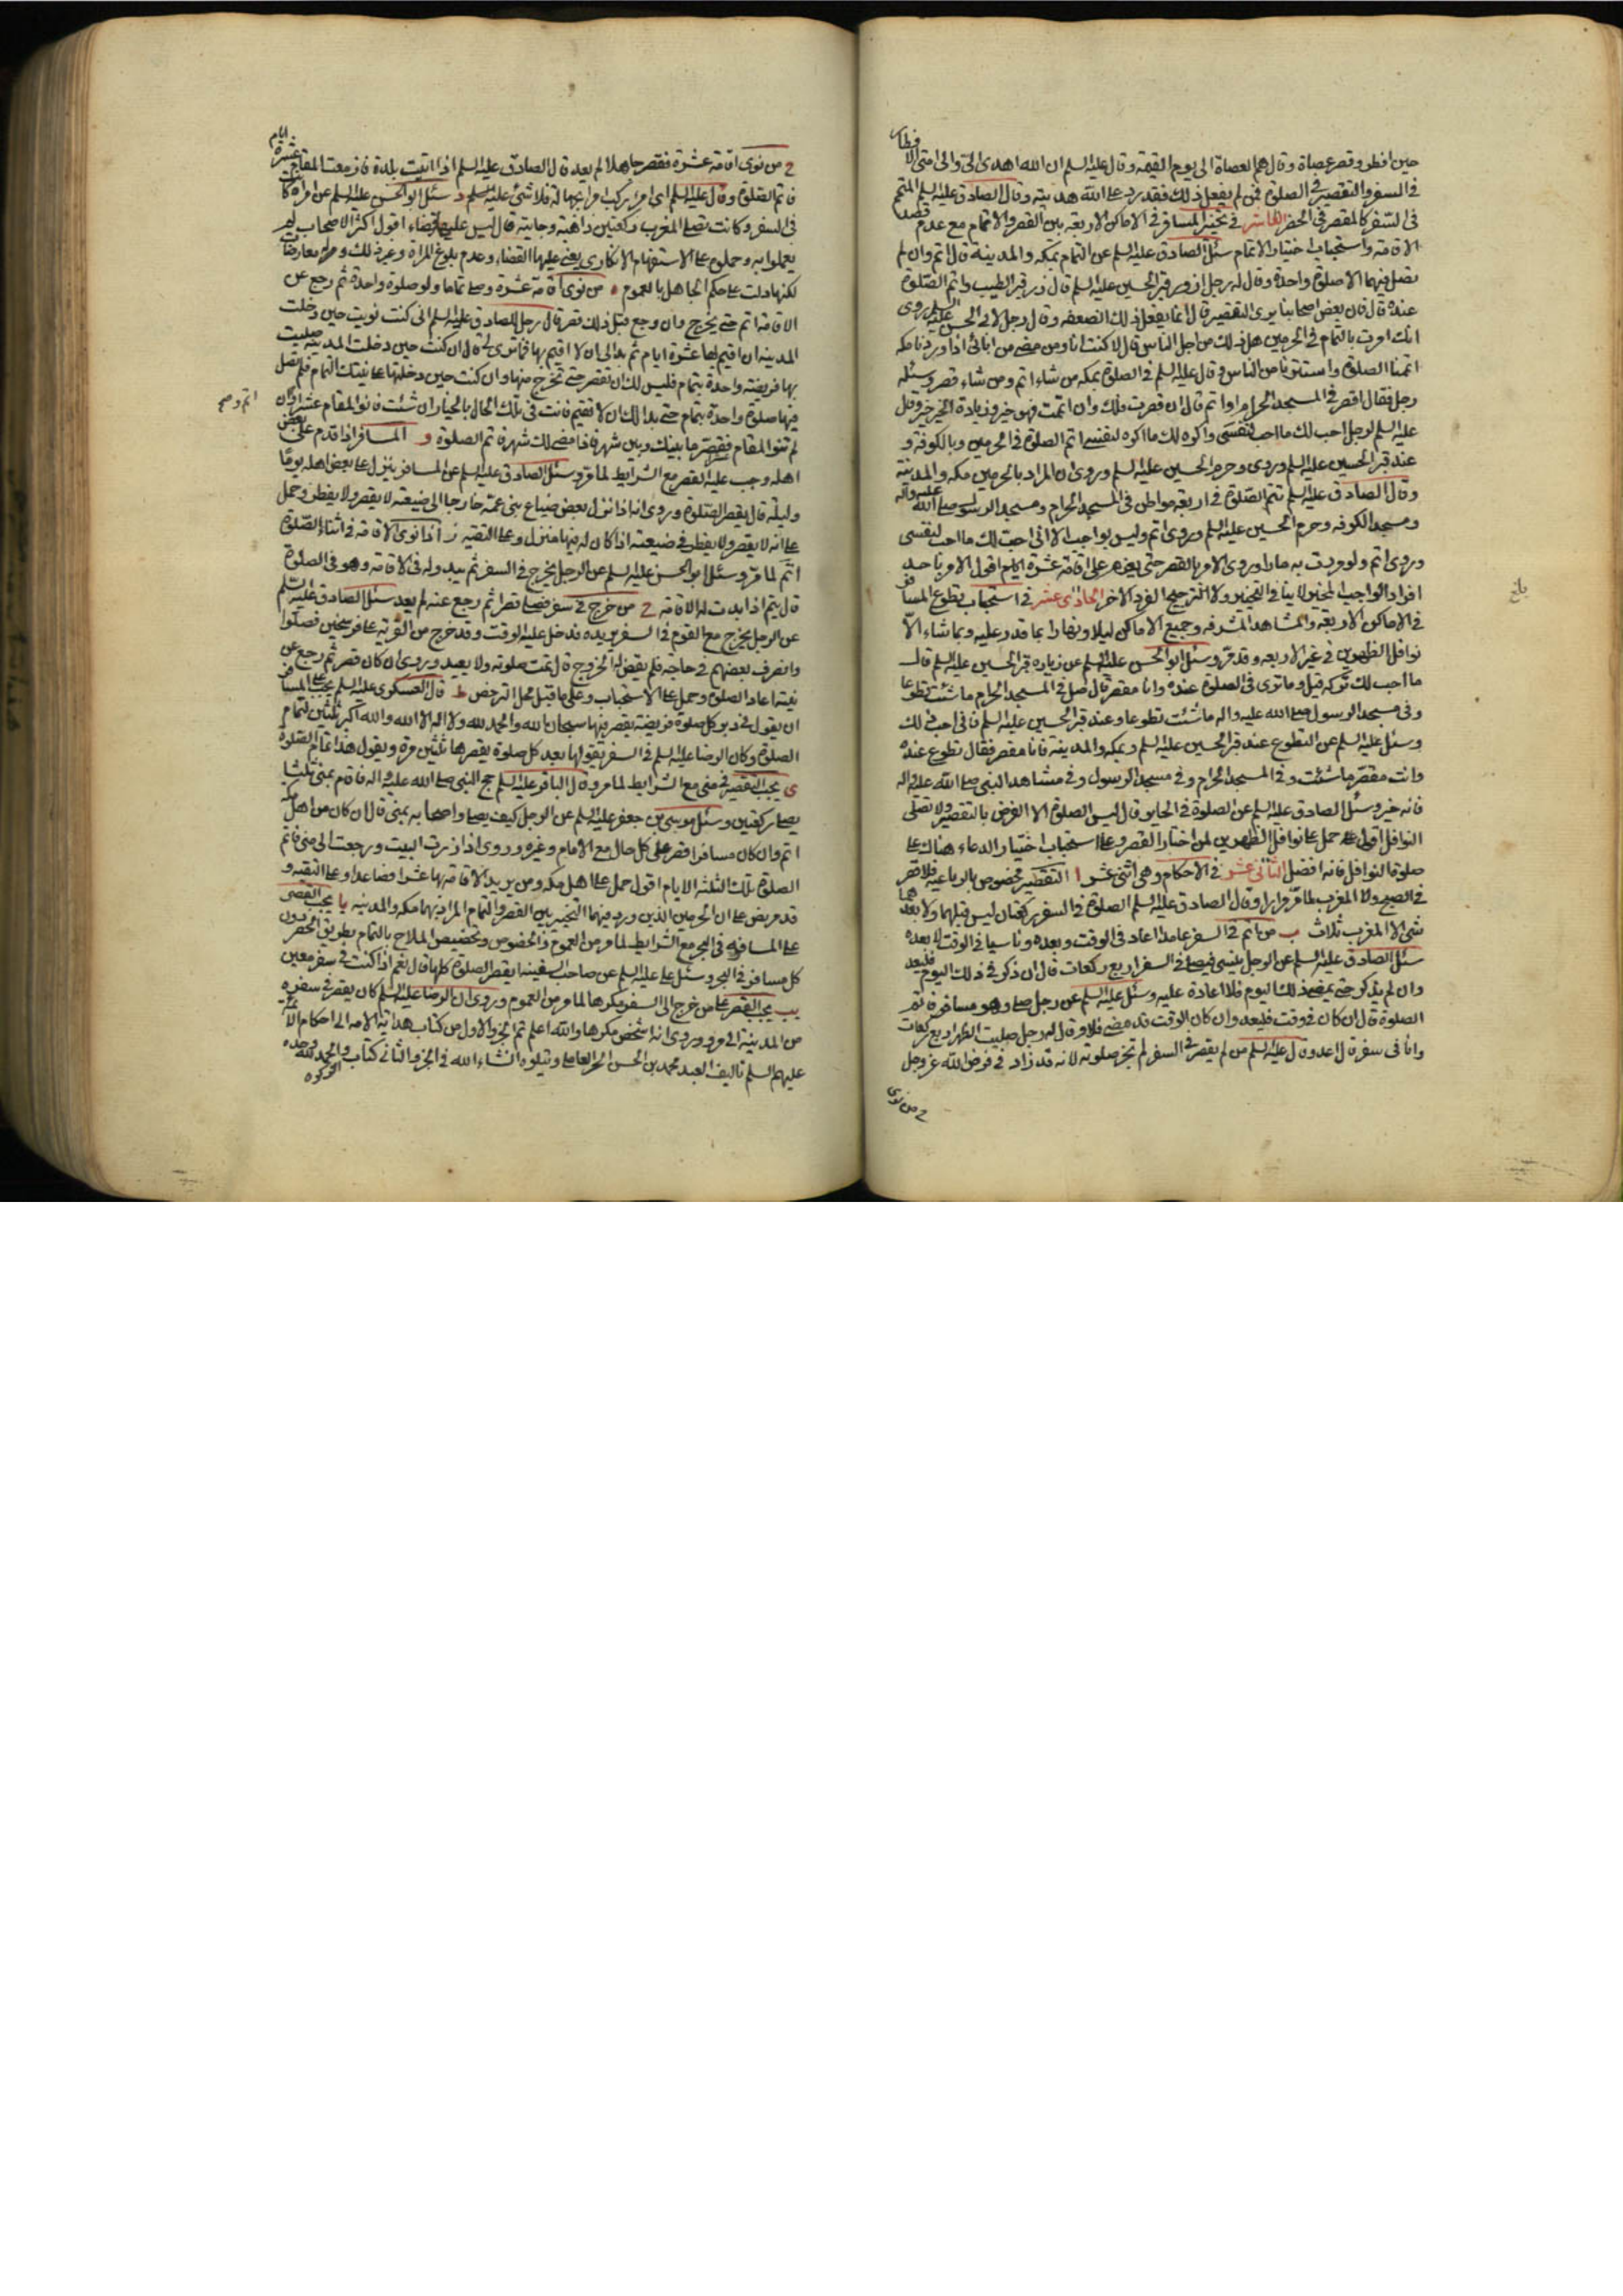 حين افطر وقصر عصاة وقال هم العصاة الى يوم القيمة وقال عليه السلم ان الله اهدى الى والى امتى الافطار
في السفر والتقصير في الصلوة فمن لم يفعل ذلك فقد رد على الله هديته وقال الصادق عليه السلم المتمم
في السفر كالمقصر في الحضر العاشر في تخيير المسافر في الاماكن الاربعة بين القصر والاتمام مع عدم قصد
الاقامة واستحباب اختيار الاتمام سئل الصادق عليه السلم عن التمام بمكه والمدينة قال اتم وان لم
تصل فيهما الا صلوة واحدة وقال له رجل ازور قبر الحسين عليه السلم قال زر قبر الطيب واتم الصلوة
عنده قال فان بعض اصحابنا يرى التقصير قال انما يفعل ذلك الضعفه وقال رجل لابي الحسن عليه السلم روى
انك امرت بالتمام في الحرمين هل ذلك من اجل الناس قال لا كنت انا ومن مضى من ابائى اذا وردنا مكه
اتممنا الصلوة واستترنا من الناس وقال عليه السلم في الصلوة بمكه من شاء اتم ومن شاء قصر وسئله
رجل فقال اقصر في المسجد الحرام او اتم قال ان قصرت فلك وان اتممت فهو خير وزيادة الخير خير وقال
عليه السلم لرجل احب لك ما احب لنفسى واكره لك ما اكره لنفسى اتم الصلوة في الحرمين وبالكوفة و
عند قبر الحسين عليه السلم وروى وحرم الحسين عليه السلم وروى ان المراد بالحرمين مكه والمدينة
وقال الصادق عليه السلم تتم الصلوة في اربعة مواطن في المسجد الحرام ومسجد الرسول صلى الله عليه واله
ومسجد الكوفه وحرم الحسين عليه السلم وروى اتم وليس بواجب الا انى احب لك ما احب لنفسى
وروى اتم ولو مررت به مارا وروى الامر بالقصر حتى يعزم على اقامة عشرة ايام اقول الامر باحد
افراد الواجب المخير لا ينافي التخيير ولا الترجيح الفرد الاخر الحادى عشر في استحباب تطوع المسافر
في الاماكن الاربعة والمشاهد المشرفه وجميع الاماكن ليلا ونهارا بما قدر عليه وبما شاء الا
نوافل الظهرين في غير الاربعه وقد مر وسئل ابو الحسن عليه السلم عن زياره قبر الحسين عليه السلم قال
ما احب لك تركه قيل وما ترى في الصلوة عنده وانا مقصر قال صل في المسجد الحرام ما شئت تطوعا
وفي مسجد الرسول صلى الله عليه واله ما شئت تطوعا وعند قبر الحسين عليه السلم فانى احب ذلك
وسئل عليه السلم عن التطوع عند قبر الحسين عليه السلم وبمكه والمدينة فانا مقصر فقال تطوع عنده
وانت مقصر ما شئت وفي المسجد الحرام وفي مسجد الرسول وفي مشاهد النبي صلى الله عليه واله
فانه خير وسئل الصادق عليه السلم عن الصلوة في الحاير قال ليس الصلوة الا الفرض بالتقصير ولا تصلى
النوافل اقول حمل على نوافل الظهرين لمن اختار القصر وعلى استحباب اختيار الدعاء هناك على
صلوة النوافل فانه افضل الثانى عشر في الاحكام وهى اثنى عشر ا التقصير مخصوص بالرباعيه فلا قصر
في الصبح ولا المغرب لما مر مرارا وقال الصادق عليه السلم الصلوة في السفر ركعتان ليس قبلهما ولا بعدهما
شئ الا المغرب ثلاث ب من اتم في السفر عامدا اعاد في الوقت وبعده وناسيا في الوقت لا بعده
سئل الصادق عليه السلم عن الرجل ينسى فيصلى في السفر اربع ركعات قال ان ذكر في ذلك اليوم فليعد
وان لم يذكر حتى يمضى ذلك اليوم فلا اعادة عليه وسئل عليه السلم عن رجل صلى وهو مسافر فاتم
الصلوة قال ان كان في وقت فليعد وان كان الوقت قد مضى فلا وقال له رجل صليت الظهر اربع ركعات
وانا في سفر قال اعد وقال عليه السلم من لم يقصر في السفر لم تجز صلوته لانه قد زاد في فرض الله عز وجل
ج من نوى
بلغ
ج من نوى اقامة عشرة فقصر جاهلا لم يعد قال الصادق عليه السلم اذا اتيت بلدة فازمعت المقام عشرة ايام
فاتم الصلوة وقال عليه السلم اى امرئ ركب امرا بجهالة فلا شئ عليه د سئل ابو الحسن عليه السلم عن امراة كانت
في السفر وكانت تصلى المغرب ركعتين ذاهبة وجايئة قال ليس عليها قضاء اقول اكثر الاصحاب لم
يعملوا به وحملوه على الاستفهام الانكارى يعنى عليها القضاء وعدم بلوغ المراة وغير ذلك
لكنها دلت على حكم الجاهل بالعموم ه من نوى اقامة عشرة وصلى تماما ولو صلوة واحدة ثم رجع عن
الاقامة اتم حتى يخرج وان رجع قبل ذلك قصر قال رجل للصادق عليه السلم انى كنت نويت حين دخلت
المدينة ان اقيم بها عشرة ايام ثم بدا لى ان لا اقيم بها فما ترى لى قال ان كنت حين دخلت المدينة صليت
بها فريضة واحدة بتمام فليس لك ان تقصر حتى تخرج منها وان كنت حين دخلتها على نيتك التمام فلم تصل
فيها صلوة واحدة بتمام حتى بدا لك ان لا تقيم فانت في تلك الحال بالخيار ان شئت فانو المقام عشرا وان
اتم وصح
لم تنو المقام فقصر ما بينك وبين شهر فاذا مضى لك شهر فاتم الصلوة و المسافر اذا قدم على بعض
اهله وجب عليه القصر مع الشرايط لما مر وسئل الصادق عليه السلم عن المسافر ينزل على بعض اهله يوما
وليلة قال يقصر الصلوة وروى انه اذا نزل بعض ضياع بنى عمه خارجا الى ضيعته لا يقصر ولا يفطر وحمل
على انه لا يقصر ولا يفطر في ضيعته اذا كان له فيها منزل وعلى التقيه ز اذا نوى الاقامة في اثناء الصلوة
اتم لما مر وسئل ابو الحسن عليه السلم عن الرجل يخرج في السفر ثم يبدو له في الاقامة وهو في الصلوة
قال يتم اذا بدت له الاقامة ح من خرج في سفر فصلى قصرا ثم رجع عنه لم يعد سئل الصادق عليه السلم
عن الرجل يخرج مع القوم في السفر يريده فدخل عليه الوقت وقد خرج من القرية على فرسخين فصلوا
وانصرف بعضهم في حاجة فلم يقض له الخروج قال تمت صلوته ولا يعيد وروى ان كان قصر ثم رجع عن
نيته اعاد الصلوة وحمل على الاستحباب وعلى ما قبل محل الترخص ط قال العسكرى عليه السلم يجب على المسافر
ان يقول في دبر كل صلوة فريضة يقصر فيها سبحان الله والحمد لله ولا اله الا الله والله اكبر ثلثين لتمام
الصلوة وكان الرضا عليه السلم في السفر يقولها بعد كل صلوة يقصرها ثلثين مرة ويقول هذا تمام الصلوة
ى يجب التقصير في منى مع الشرايط لما مر وقال الباقر عليه السلم حج النبى صلى الله عليه واله فاقام بمنى ثلثا
يصلى ركعتين وسئل موسى بن جعفر عليه السلم عن الرجل كيف يصلى واصحابه بمنى قال ان كان من اهل مكه
اتم وان كان مسافرا قصر على كل حال مع الامام وغيره وروى اذا زرت البيت ورجعت الى منى فاتم
الصلوة تلك الثلثة الايام اقول حمل على اهل مكه ومن يريد الاقامة بها عشرا فصاعدا وعلى التقيه و
قد مر نص على ان الحرمين الذين ورد فيهما التخيير بين القصر والتمام المراد بهما مكه والمدينه يا يجب القصر
على المسافر في البحر مع الشرايط لما مر من العموم والخصوص وتخصيص الملاح بالتمام بطريق الحصر دون
كل مسافر في البحر وسئل على عليه السلم عن صاحب السفينة ايقصر الصلوة كلها قال نعم اذا كنت في سفر معين
يب يجب القصر على من خرج الى السفر مكرها لما مر من العموم وروى ان الرضا عليه السلم كان يقصر في سفره
من المدينة الى مرو وروى انه اشخص مكرها والله اعلم تم الجزو الاول من كتاب هداية الامه الى احكام الائمه
عليهم السلم تاليف العبد محمد بن الحسن الحر العاملى ويتلوه انشاء الله في الجزو الثانى كتاب الزكوه والحمد لله وحده